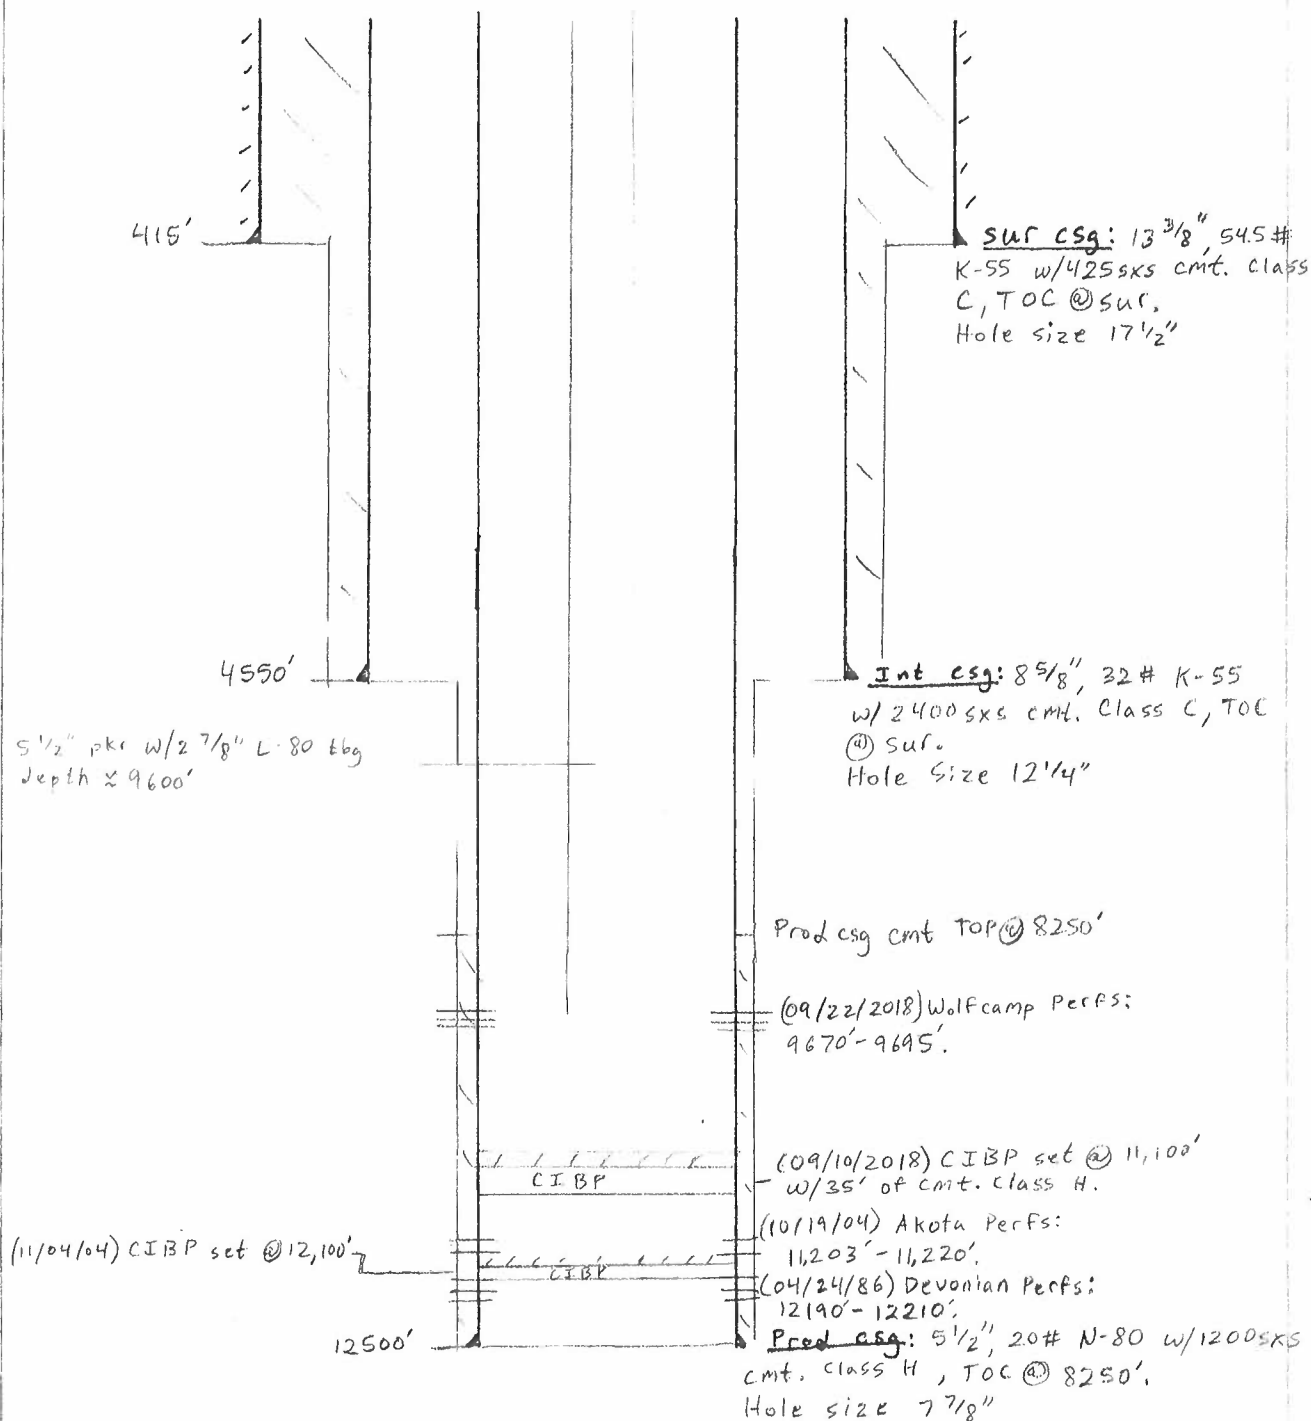 415'
sur csg: 13 3/8", 54.5#
K-55 w/425sxs cmt. Class
C, TOC @ sur.
Hole size 17 1/2"
4550'
Int csg: 8 5/8", 32# K-55
w/ 2400 sxs cmt. Class C, TOC
@ sur.
Hole Size 12 1/4"
5 1/2" pkr w/2 7/8" L-80 tbg
depth ≈ 9600'
Prod csg cmt TOP @ 8250'
(09/22/2018) Wolfcamp Perfs:
9670'-9695'.
(09/10/2018) CIBP set @ 11,100'
w/35' of cmt. Class H.
CIBP
(10/19/04) Akota Perfs:
11,203'-11,220'.
(11/04/04) CIBP set @ 12,100'
CIBP
(04/24/86) Devonian Perfs:
12190'-12210'.
12500'
Prod csg: 5 1/2", 20# N-80 w/1200sxs
cmt. Class H, TOC @ 8250'.
Hole size 7 7/8"